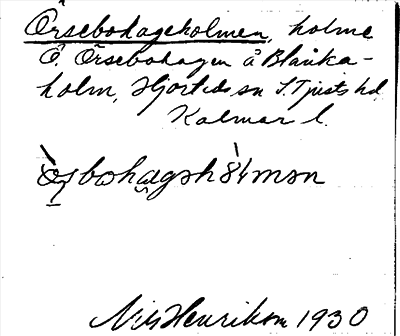 Örsebohageholmen, holme
Ö. Örsebohagen å Blanka-
holm, Hjorteds sn S. Tjusts hd
Kalmar l.
Nils Henrikson 1930